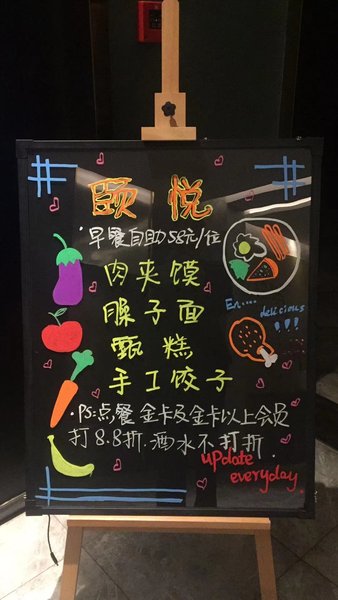 颐悦
早餐自助58元/位
肉夹馍
臊子面
甑糕
手工饺子
En....
delicious
!!!
·PS:点餐 金卡及金卡以上会员
打8.8折.酒水不打折.
update
everyday.